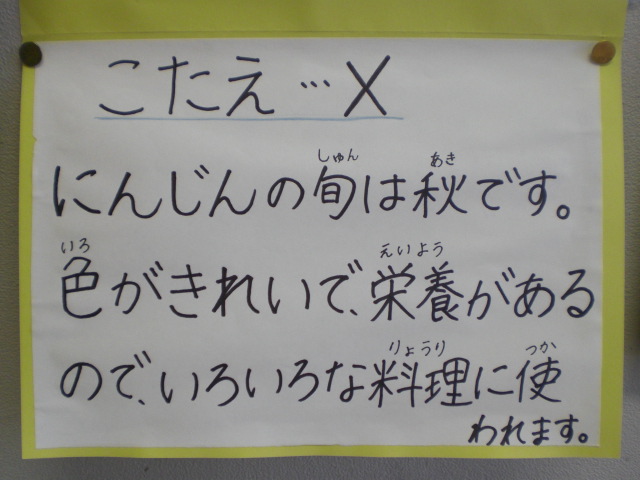 こたえ…X
にんじんの旬は秋です。
しゅん あき
色がきれいで、栄養がある
いろ えいよう
ので、いろいろな料理に使
りょうり つか
われます。